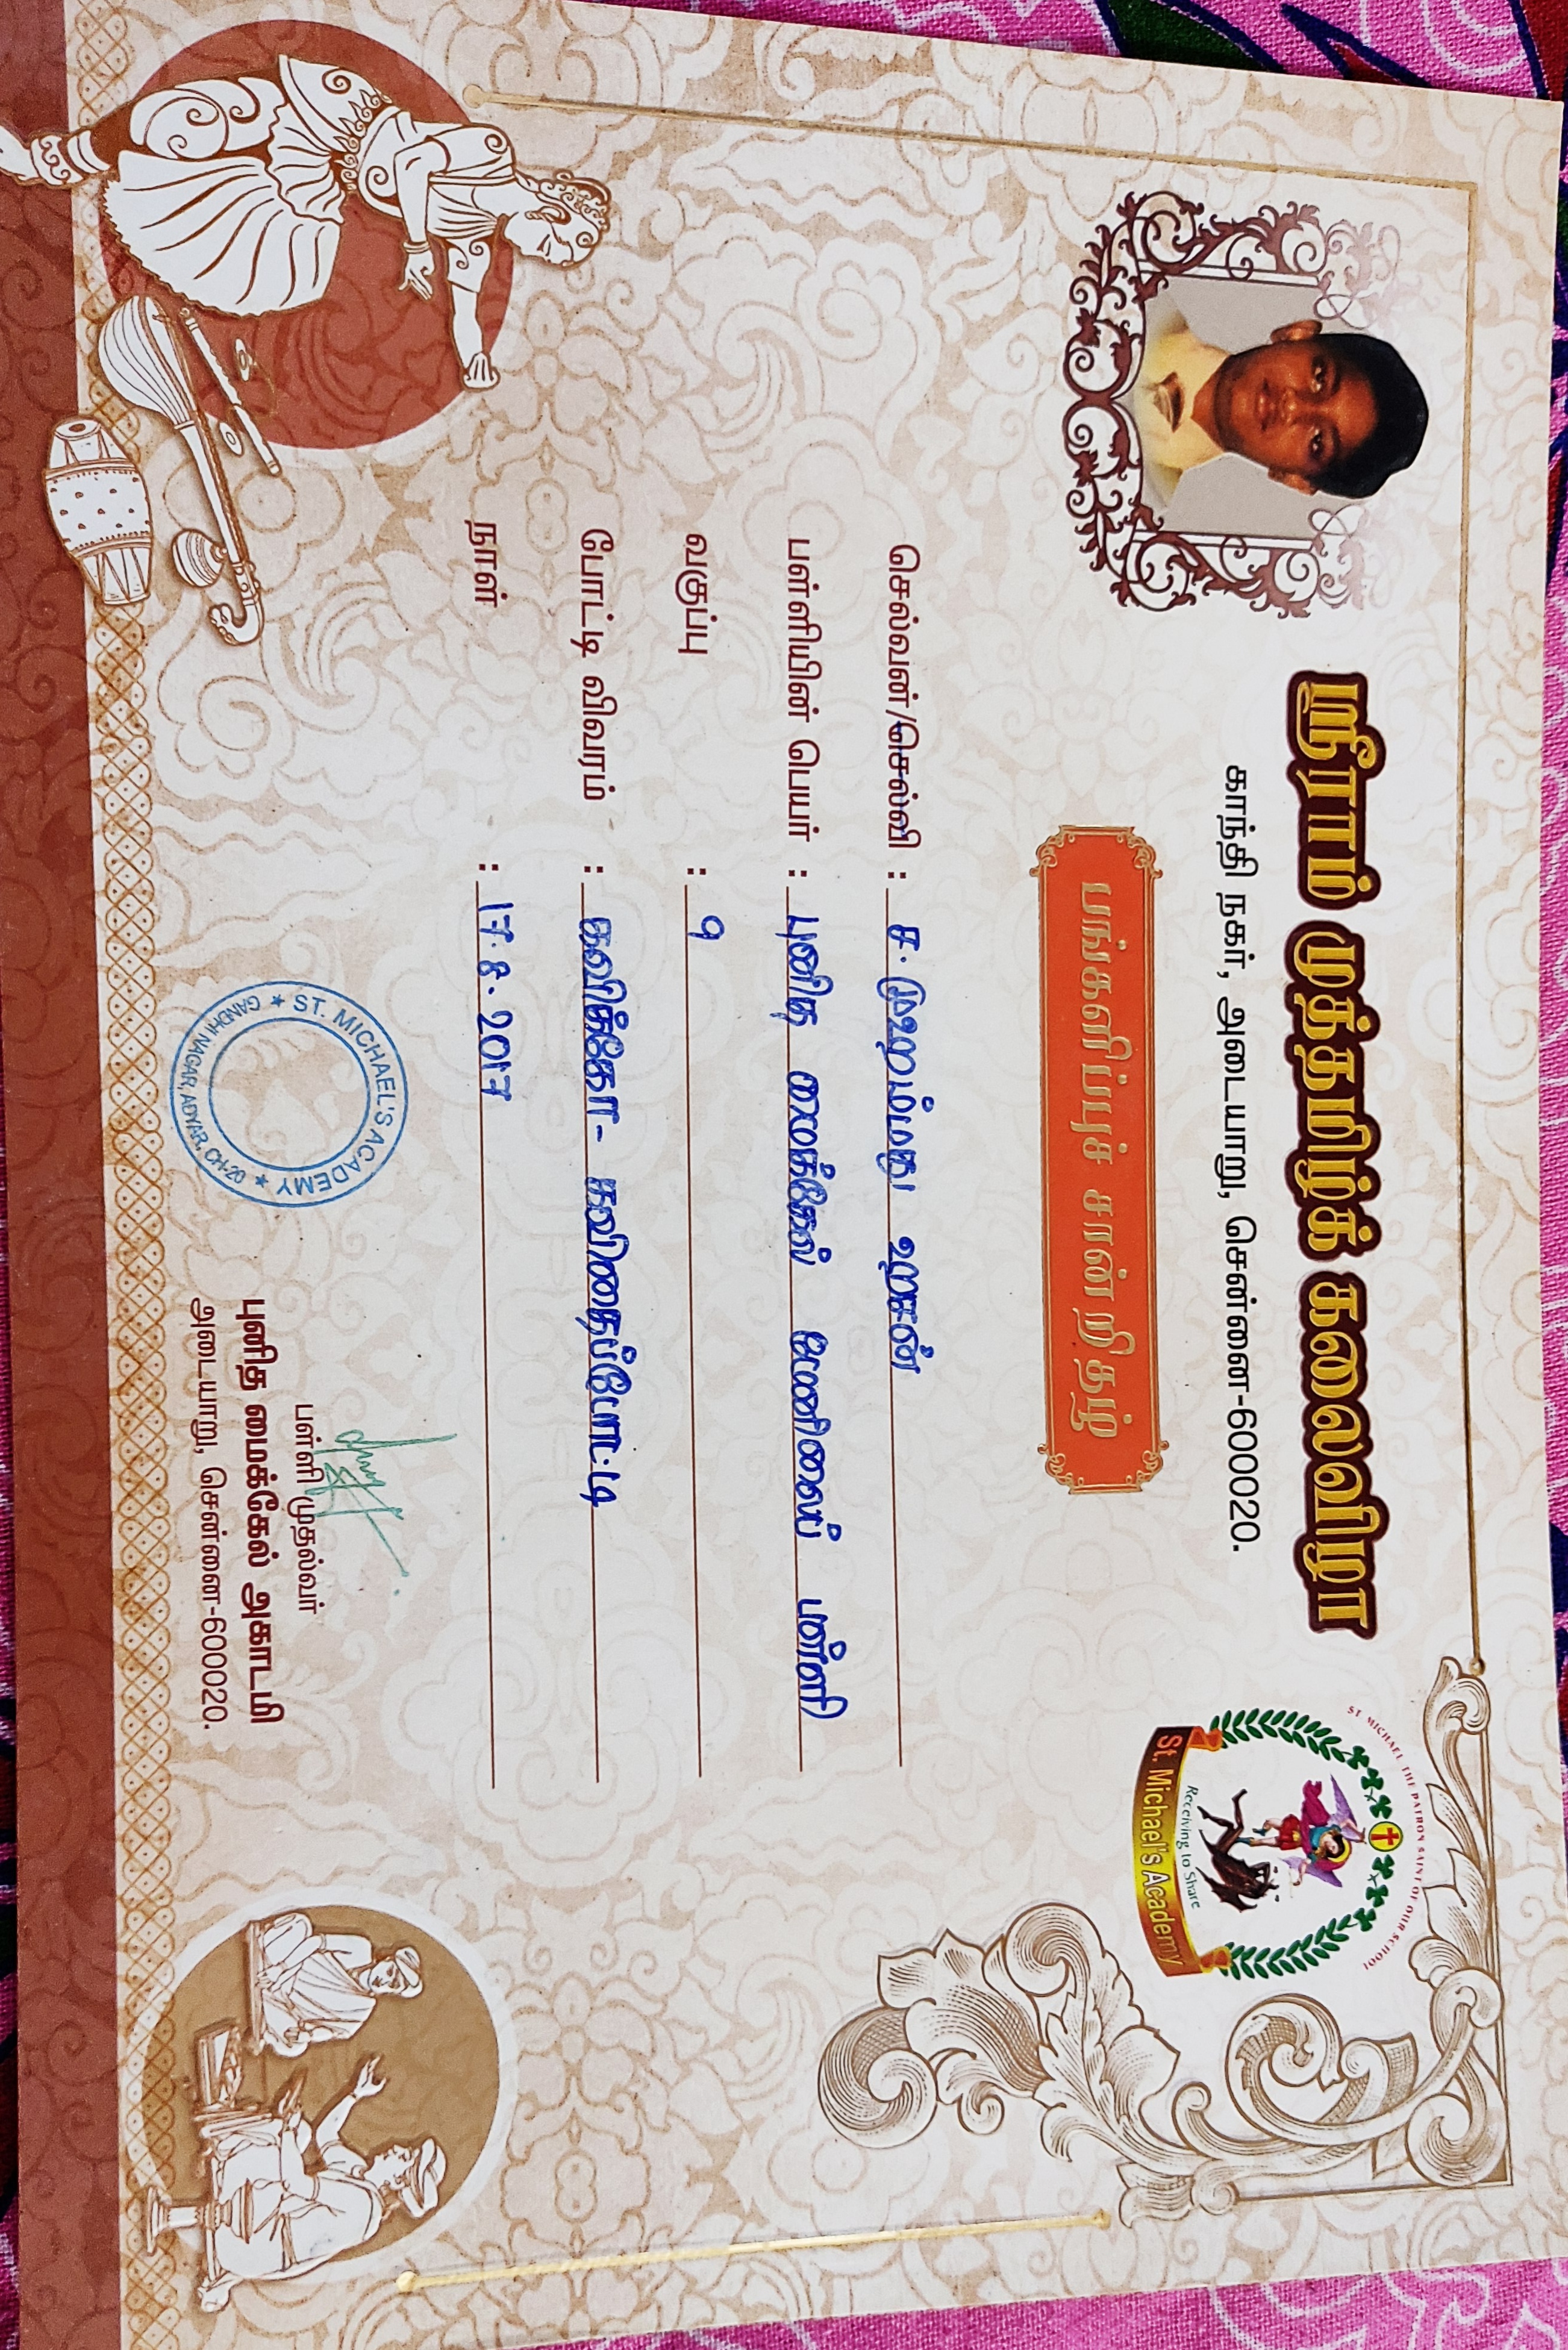 ஸ்ரீராம் முத்தமிழ்க் கலைவிழா
காந்தி நகர், அடையாறு, சென்னை-600020.
ST MICHAEL THE PATRON SAINT OF OUR SCHOOL
Receiving to Share
St. Michael's Academy
பங்களிப்புச் சான்றிதழ்
செல்வன்/செல்வி : ச. முஹம்மது ஹசன்
பள்ளியின் பெயர் : புனித மைக்கேல் மேனிலைப் பள்ளி
வகுப்பு : 9
போட்டி விவரம் : கவிக்கோ- கவிதைப்போட்டி
நாள் : 17.8.2017
ST. MICHAEL'S ACADEMY
GANDHI NAGAR, ADYAR, CH-20
பள்ளி முதல்வர்
புனித மைக்கேல் அகாடமி
அடையாறு, சென்னை-600020.